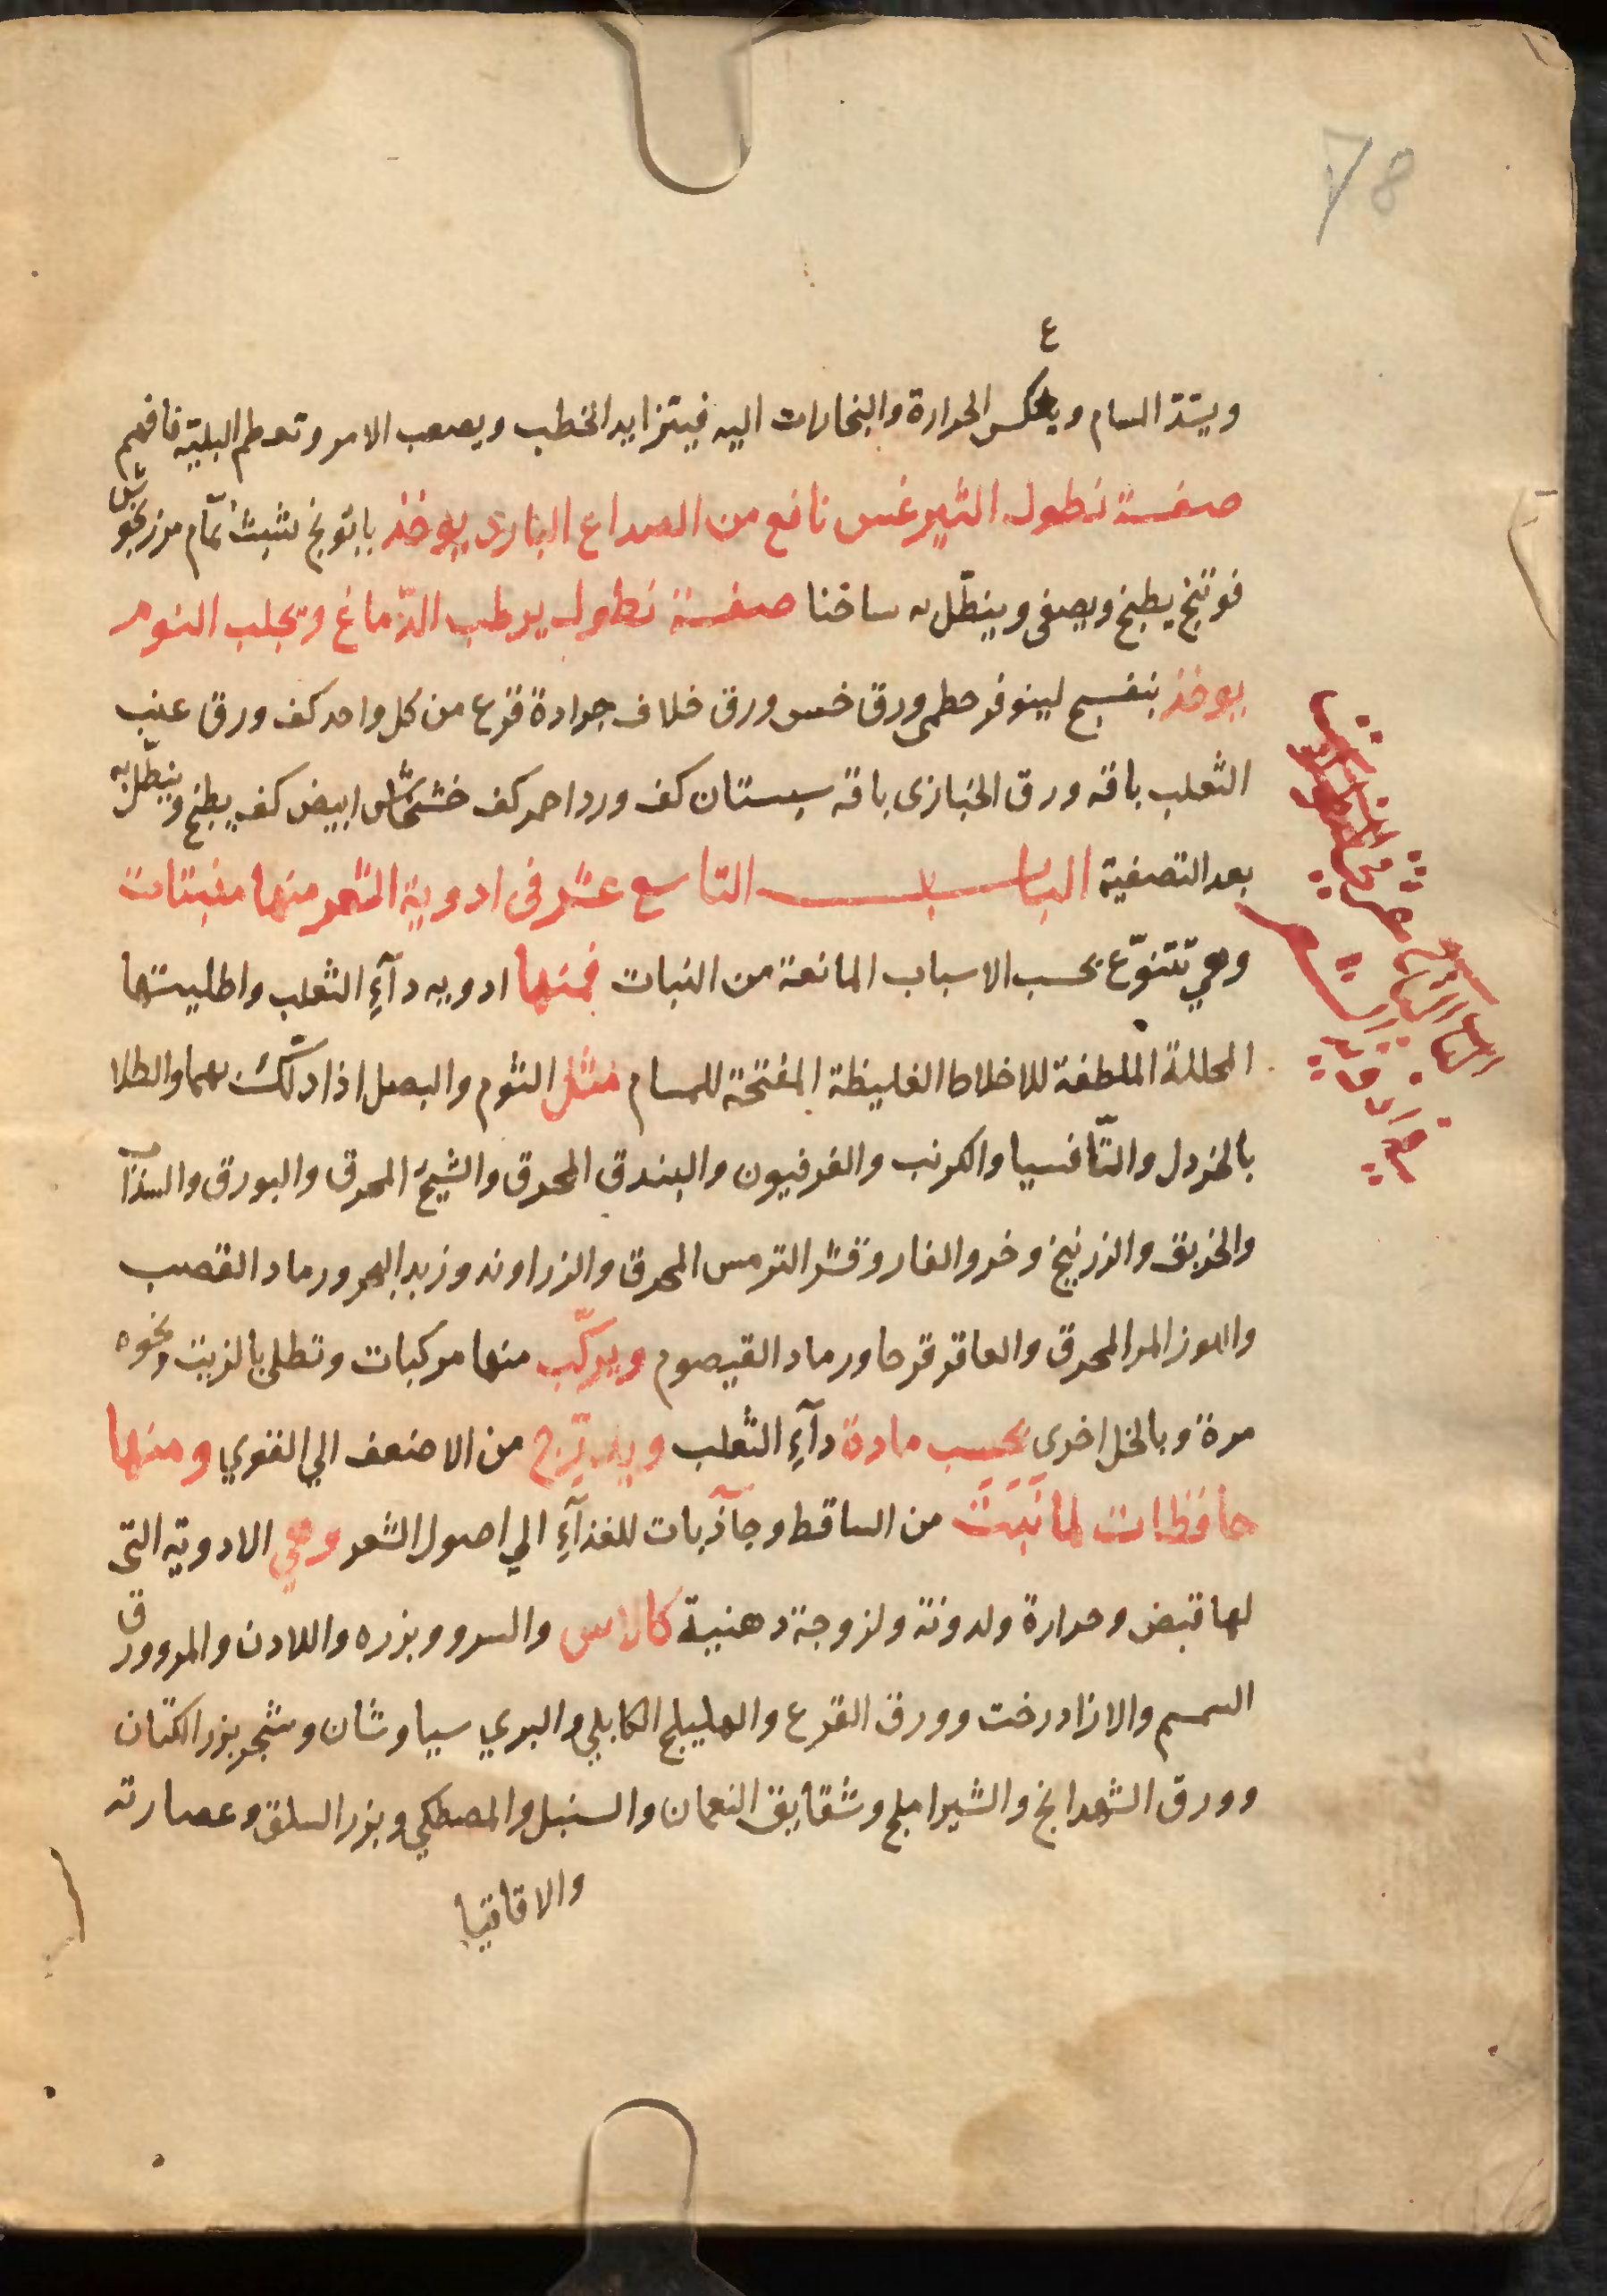 78
ع
ويسد المسام ويعكس الحرارة والبخارات اليه فيتزايد الخطب ويصعب الامر وتعطم البلية فافهم
صفة نطول الثيرغس نافع من الصداع البارد يوخذ بابونج شبث نمّام مرزنجوش
فوتنج يطبخ ويصفى وينطّل به ساخنا صفة نطول يرطب الدّماغ ويجلب النوم
يوخذ بنفسج لينوفر خطمى ورق خس ورق خلاف جرادة قرع من كل واحد كف ورق عنب
الثعلب باقه ورق الخبازى باقه سبستان كف ورد احمر كف خشخاش ابيض كف يطبخ وينطّل به
بعد التصفية البـــاب التاسع عشر فى ادوية الشعر منها منبتات
وهي تتنوّع بحسب الاسباب المانعة من النبات فمنها ادويه دآءِ الثعلب واطليتها
المحللة الملطفة للاخلاط الغليظة المفتحة للمسام مثل الثوم والبصل اذا دلكت بهما والطلا
بالخردل والثّافسيا والكرنب والفرفيون والبندق المحرق والشيح المحرق والبورق والسذاب
والخربق والزرنيخ وخرو الفار وقشر الترمس المحرق والزراوند وزبد البحر ورماد القصب
واللوز المر المحرق والعاقرقرحا ورماد القيصوم ويركّب منها مركبات وتطلى بالزيت ونحوه
مرة وبالخل اخرى بحسب مادة دآءِ الثعلب ويدرّج من الاضعف الي القوي ومنها
حافظات لما نَبَتَ من الساقط وجآذبات للغذآءِ الي اصول الشعر وهي الادوية التى
لها قبض وحرارة ولدونة ولزوجة دهنية كالاس والسرو وبزره واللادن والمر وورق
السمسم والازادرخت وورق القرع والهليلج الكابلي والبري سياوشان وشجر بزر الكتان
وورق الشهدانج والشيراملج وشقايق النعمان والسنبل والمصطكي وبزر السلق وعصارته
والاقاقيا
الباب التاسع عشر
فى ادوية الشعر